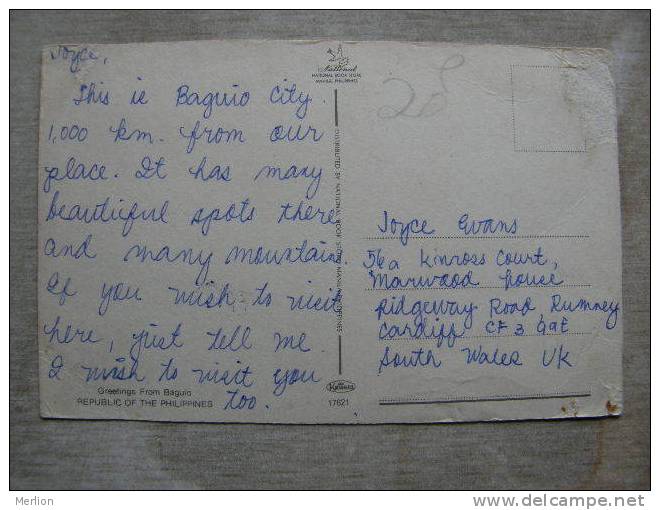 Joyce,
This is Baguio City.
1,000 km. from our
place. It has many
beautiful spots there
and many mountain
If you wish to visit
here, just tell me.
I wish to visit you
too.
Greetings From Baguio
REPUBLIC OF THE PHILIPPINES
National
NATIONAL BOOK STORE
MANILA, PHILIPPINES
DISTRIBUTED BY NATIONAL BOOK STORE, MANILA, PHILIPPINES
17621
Joyce Evans
56a Kinross Court,
Marwood House
Ridgeway Road, Rumney
Cardiff CF 3 9AE
South Wales UK
Merlion
www.delcampe.net